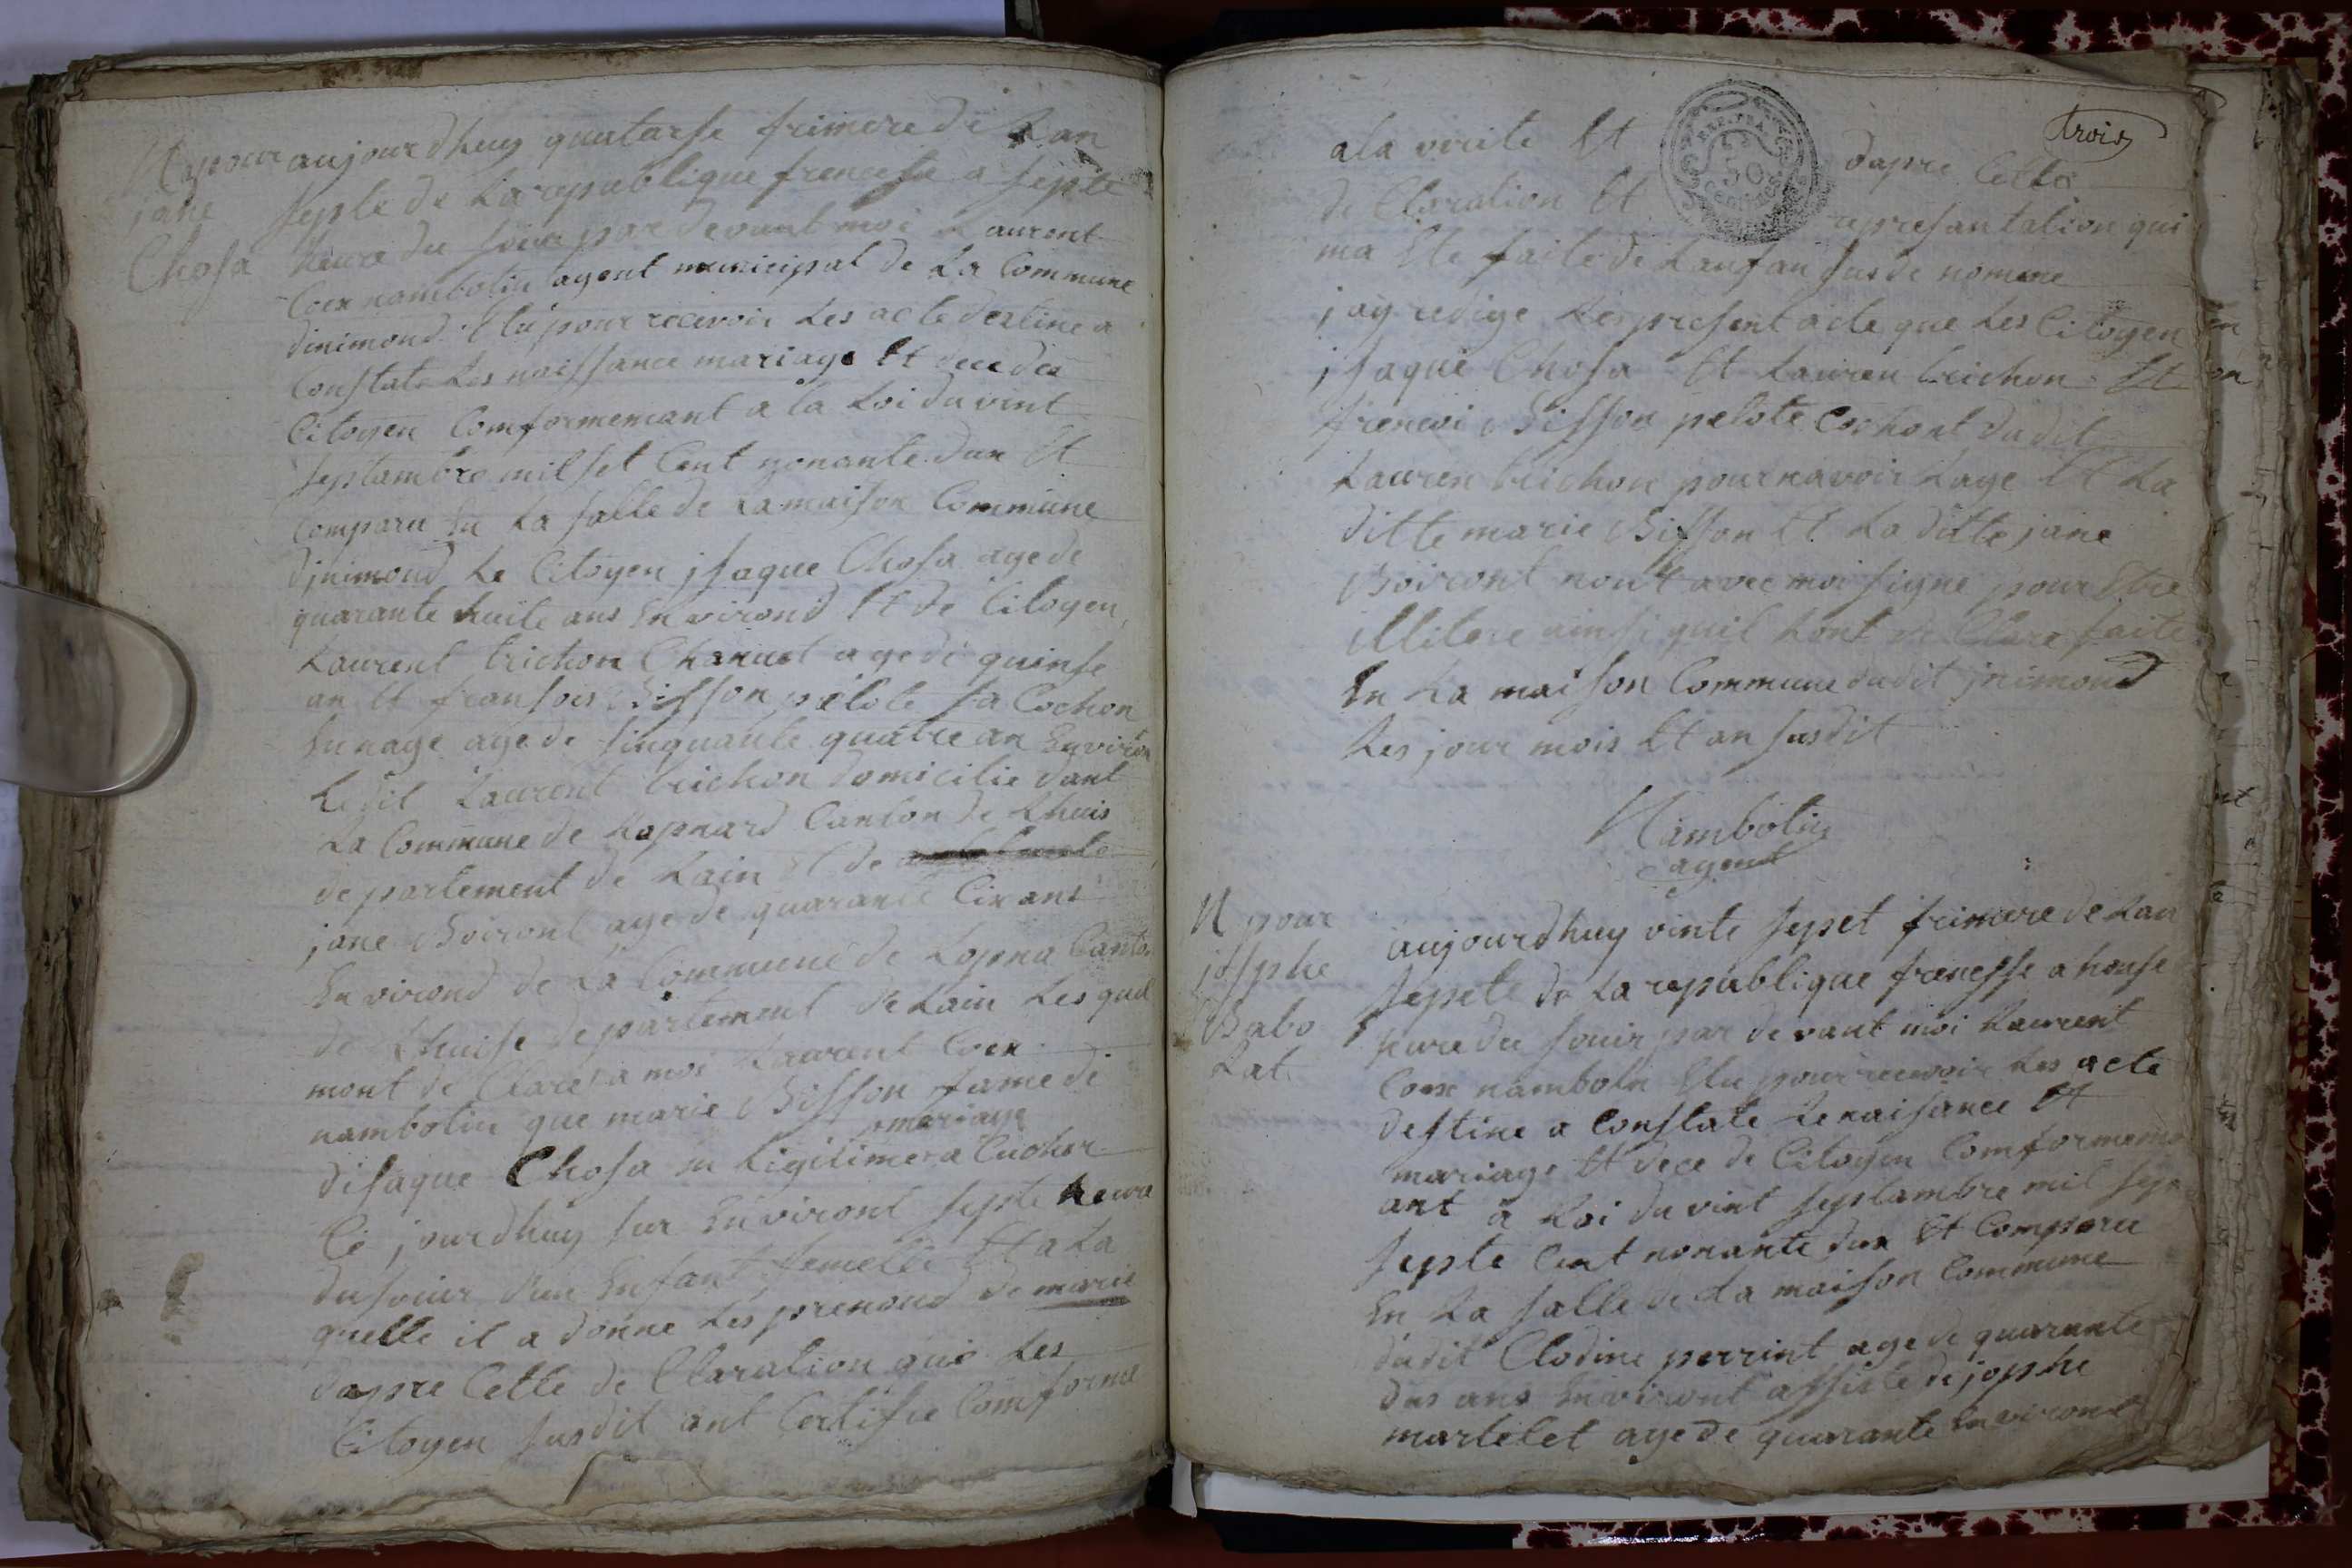 N pour
jane
Chosa
aujourdhuy quatorse frimere de Lan
septe de La republique francese a septe
heure du soier par devant moi Laurent
Coex nambotin agent municipal de La Commune
dinimond Elu pour recevoir Les acte destine a
Constate Les naissance mariage Et dece des
Citoyen Comformemant a la Loi du vint
septambre mil set Cent nonante dux Et
Comparu En La salle de La maison Commune
djnimond Le Citoyen jsaque Chosa age de
quarante huite ans Environd Et de Citoyen
Laurent trichon Charuet age de quinse
an Et fransois Bisson pelote sa Cochon
En nage age de sinquante quatre an Environ
Ledit Laurent trichon domicilie dant
La Commune de Lopnard Canton de Lhuis
departement de Lain Et de
jane Boiront age de quarante Cix ans
Environd de La Commune de Lopna Canton
de Lhuise departement de Lain Les quel
mont de Clare a moi Laurent Coex
nambotin que marie Bisson fame de
mariage
disaque Chosa en Legitimera Cuoher
Ce jourdhuy sur Environt septe heure
du soiur dun Enfant femelle Et a La
quelle il a donne Les prenond de marie
dapre Cette de Claration que Les
Citoyen susdit ont Certifie Comforme
trois
a la verite Et dapre Cette
de Claration Et represantation qui
ma Ete faite de Lanfan susde nomme
jay redige Les present acte que Les Citoyen
jsaque Chosa Et Lauren trichon Et
francoi Bisson pelote Cochont dudit
Lauren trichon pour navoir Lage Et La
ditte marie Bisson Et La ditte jane
Boiront nont avec moi signe pour Etre
illitere ainsi quil Lont de Clare faite
En La maison Commune dudit jnimond
Les jour mois Et an susdit
Nambotin
agent
N pour
josphe
Babo
Lat
aujourdhuy vinte sepet frimere de Lan
sepete de La republique franesse a honse
heure du souir par devant moi Laurent
Coex nambotn Elu pour recevoir Les acte
destine a Constate Le naisance Et
mariage Et dece de Citoyen Comformem
ant a Loi du vint septambre mil sep
septe Cent nonante dux Et Comparu
En La salle de La maison Commune
dudit Clodine perrint age de quarante
dus ans Environt assiste de jophe
martelet age de quarante Environt